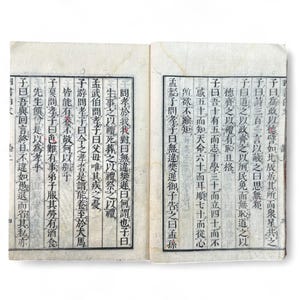 子曰爲政以德譬如北辰居其所而衆星共之
子曰詩三百一言以蔽之曰思無邪
子曰道之以政齊之以刑民免而無恥道之以
德齊之以禮有恥且格
子曰吾十有五而志于學三十而立四十而不
惑五十而知天命六十而耳順七十而從心
所欲不踰矩
孟懿子問孝子曰無違樊遲御子告之曰孟孫
問孝於我我對曰無違樊遲曰何謂也子曰
生事之以禮死葬之以禮祭之以禮
孟武伯問孝子曰父母唯其疾之憂
子游問孝子曰今之孝者是謂能養至於犬馬
皆能有養不敬何以別乎
子夏問孝子曰色難有事弟子服其勞有酒食
先生饌曾是以爲孝乎
子曰吾與回言終日不違如愚退而省其私亦